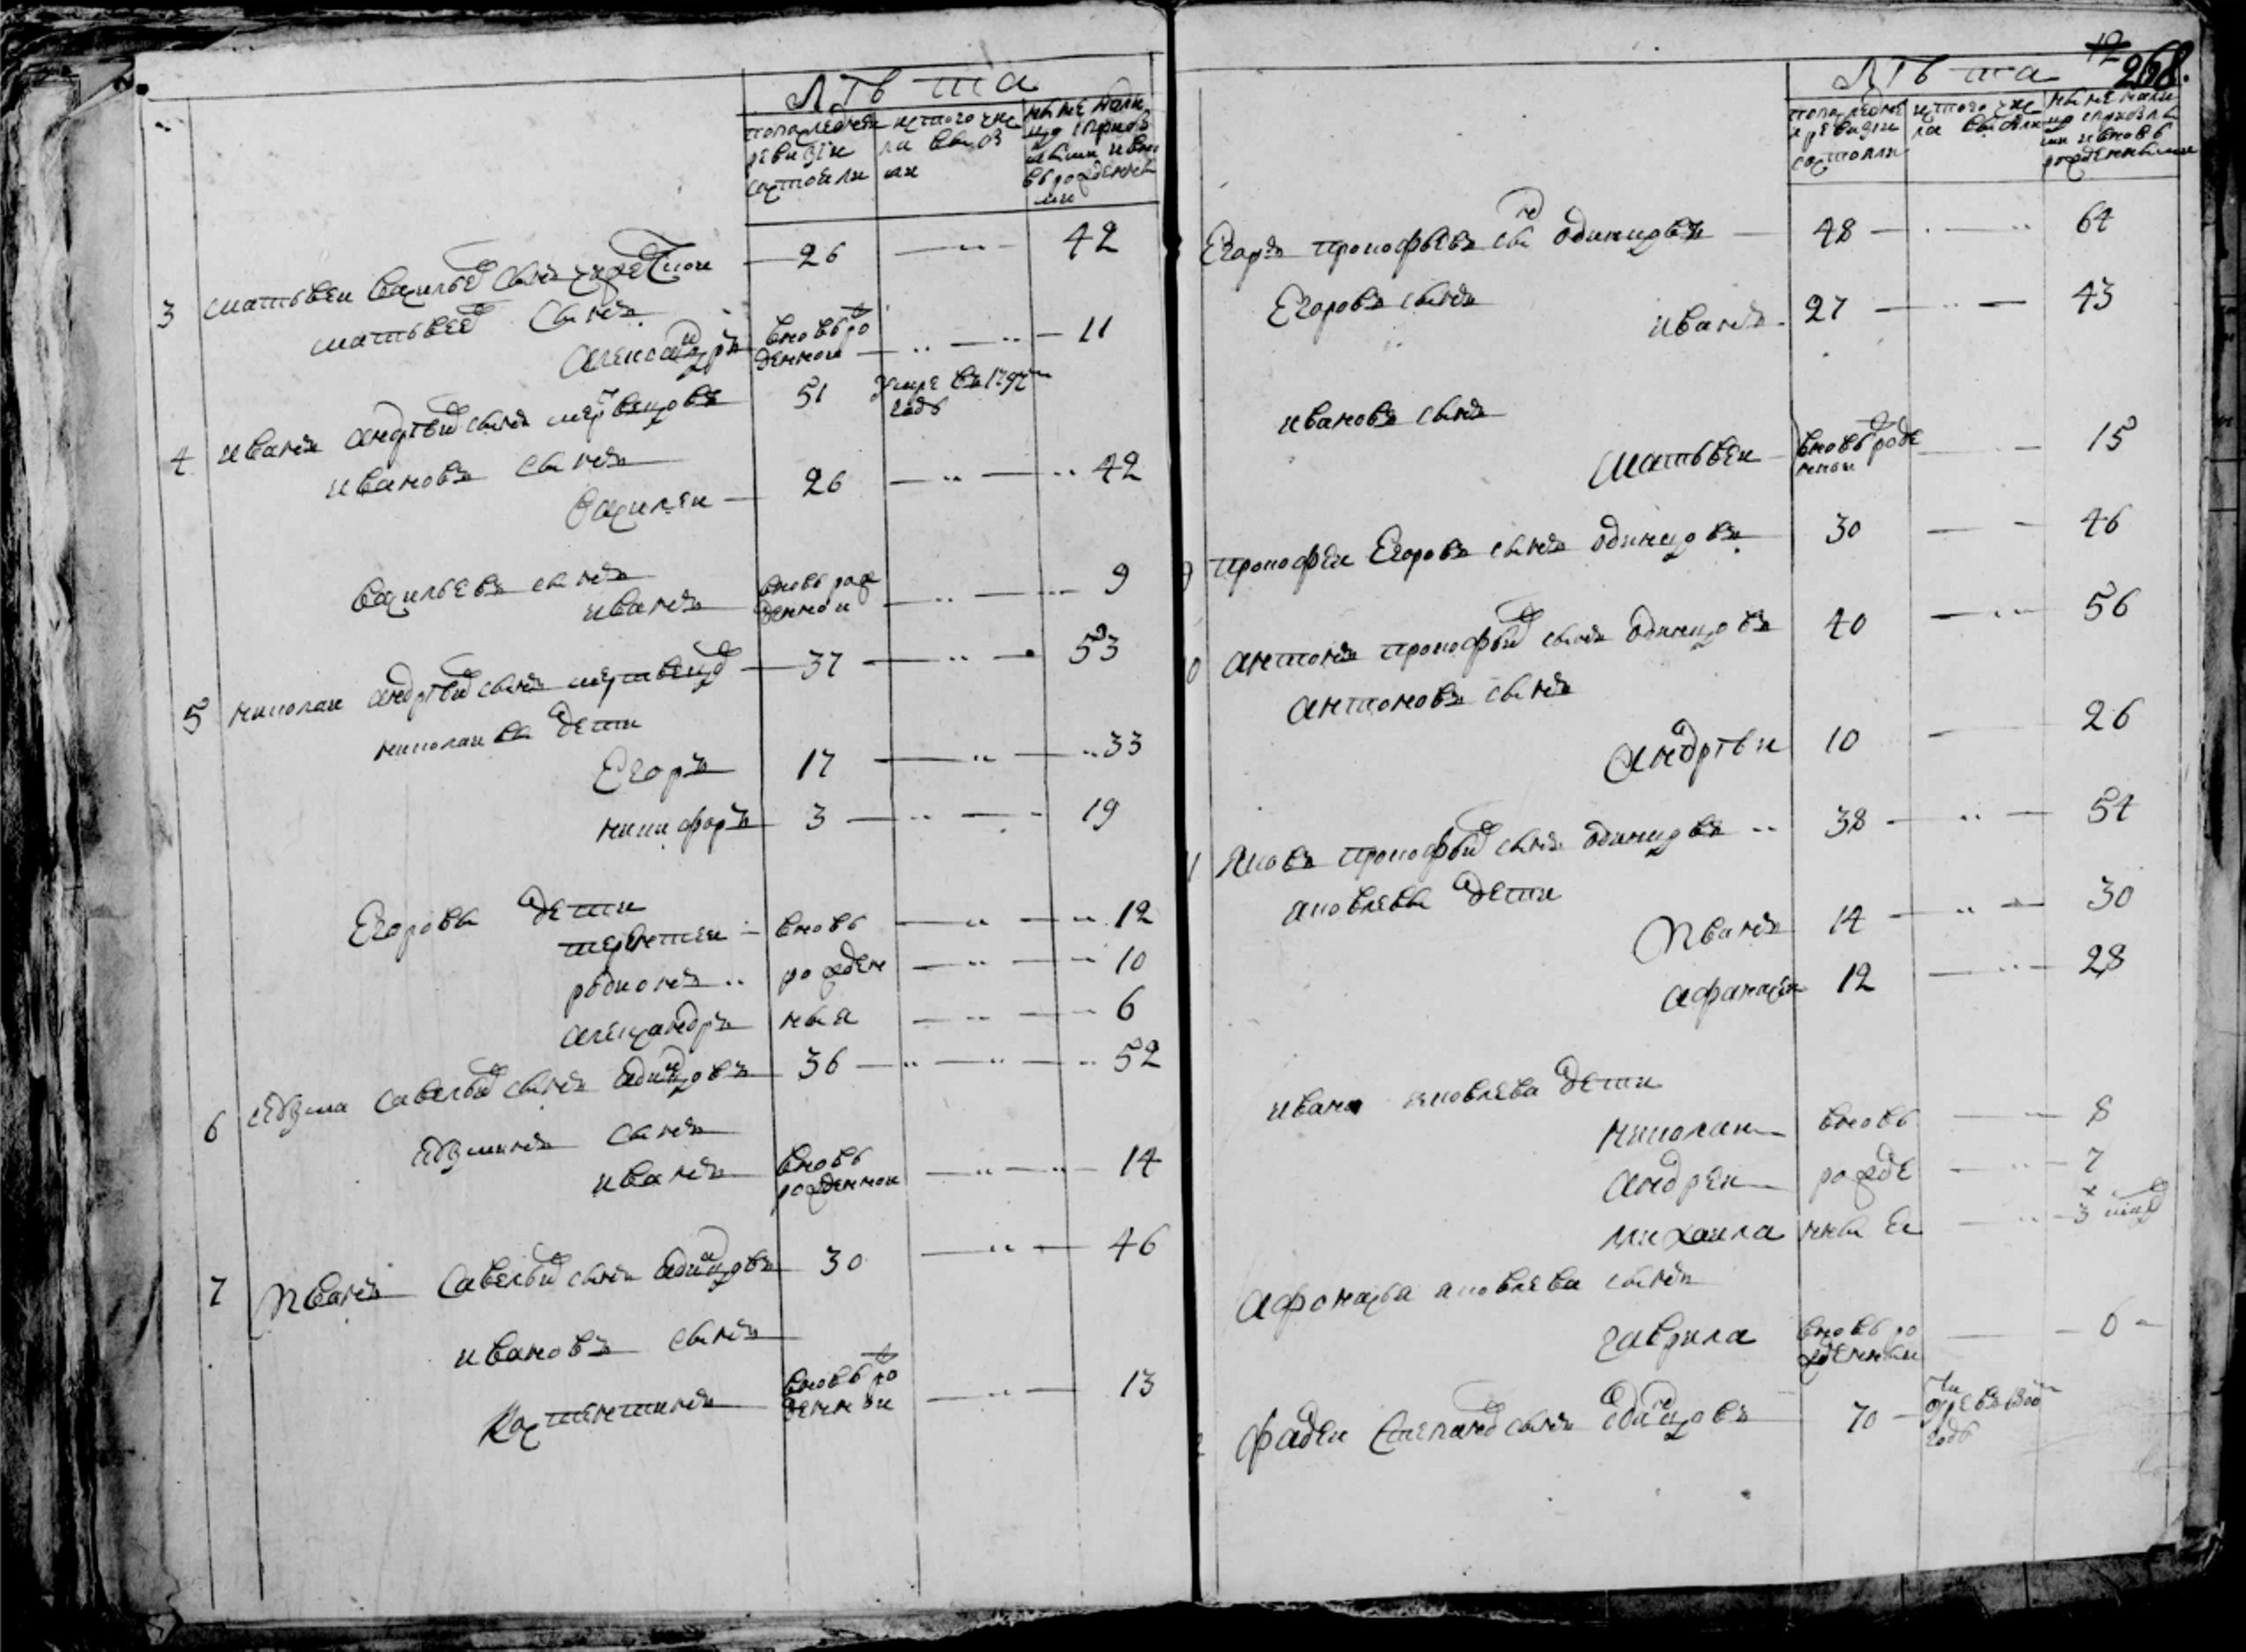 Лѣта
попаследней ревизiи состояли
ис того числа выбыли
ныне налицо с прибылыми и вновь рожденными
3 матвеи василев сынъ 26 42
матвеев сынъ
александръ вновь рожденнои 11
4 иванъ андреев сынъ мертвецовъ 51 умре въ 1797м годе
ивановъ сынъ
василеи 26 42
васильевъ сынъ
иванъ вновь рожденнои 9
5 николаи андреев сынъ мертвецов 37 53
николаивы дети
Егоръ 17 33
никифоръ 3 19
Егоровы дети
терентеи вновь 12
родионъ рожден 10
александръ ныя 6
6 савельев сынъ адинцовъ 36 52
сынъ
иванъ вновь рожденнои 14
7 Иванъ савельев сынъ адинцовъ 30 46
ивановъ сынъ
костентинъ вновь рожденнои 13
12 268.
Лѣта
попаследнеи ревизiи состояли
ис того числа выбыли
ныне налицо с прибылыми и вновь рожденными
Егоръ прокофьевъ сынъ одинцовъ 48 64
Егоровъ сынъ
иванъ 27 43
ивановъ сынъ
матвеи вновь рожденнои 15
9 прокофеи Егоровъ сынъ одинцовъ 30 46
10 антонъ прокофьев сынъ одинцовъ 40 56
антоновъ сынъ
андрѣи 10 26
11 яковъ прокофьев сынъ одинцовъ 38 54
яковлевы дети
Иванъ 14 30
афанасеи 12 28
ивана яковлева дети
николаи вновь 8
андреи рожде 7
михаила нныя 3 мец
афонасья яковлева сынъ
гаврила вновь рожденныи 6
фадеи степанов сынъ одинцовъ 70 умре въ 1800м годе